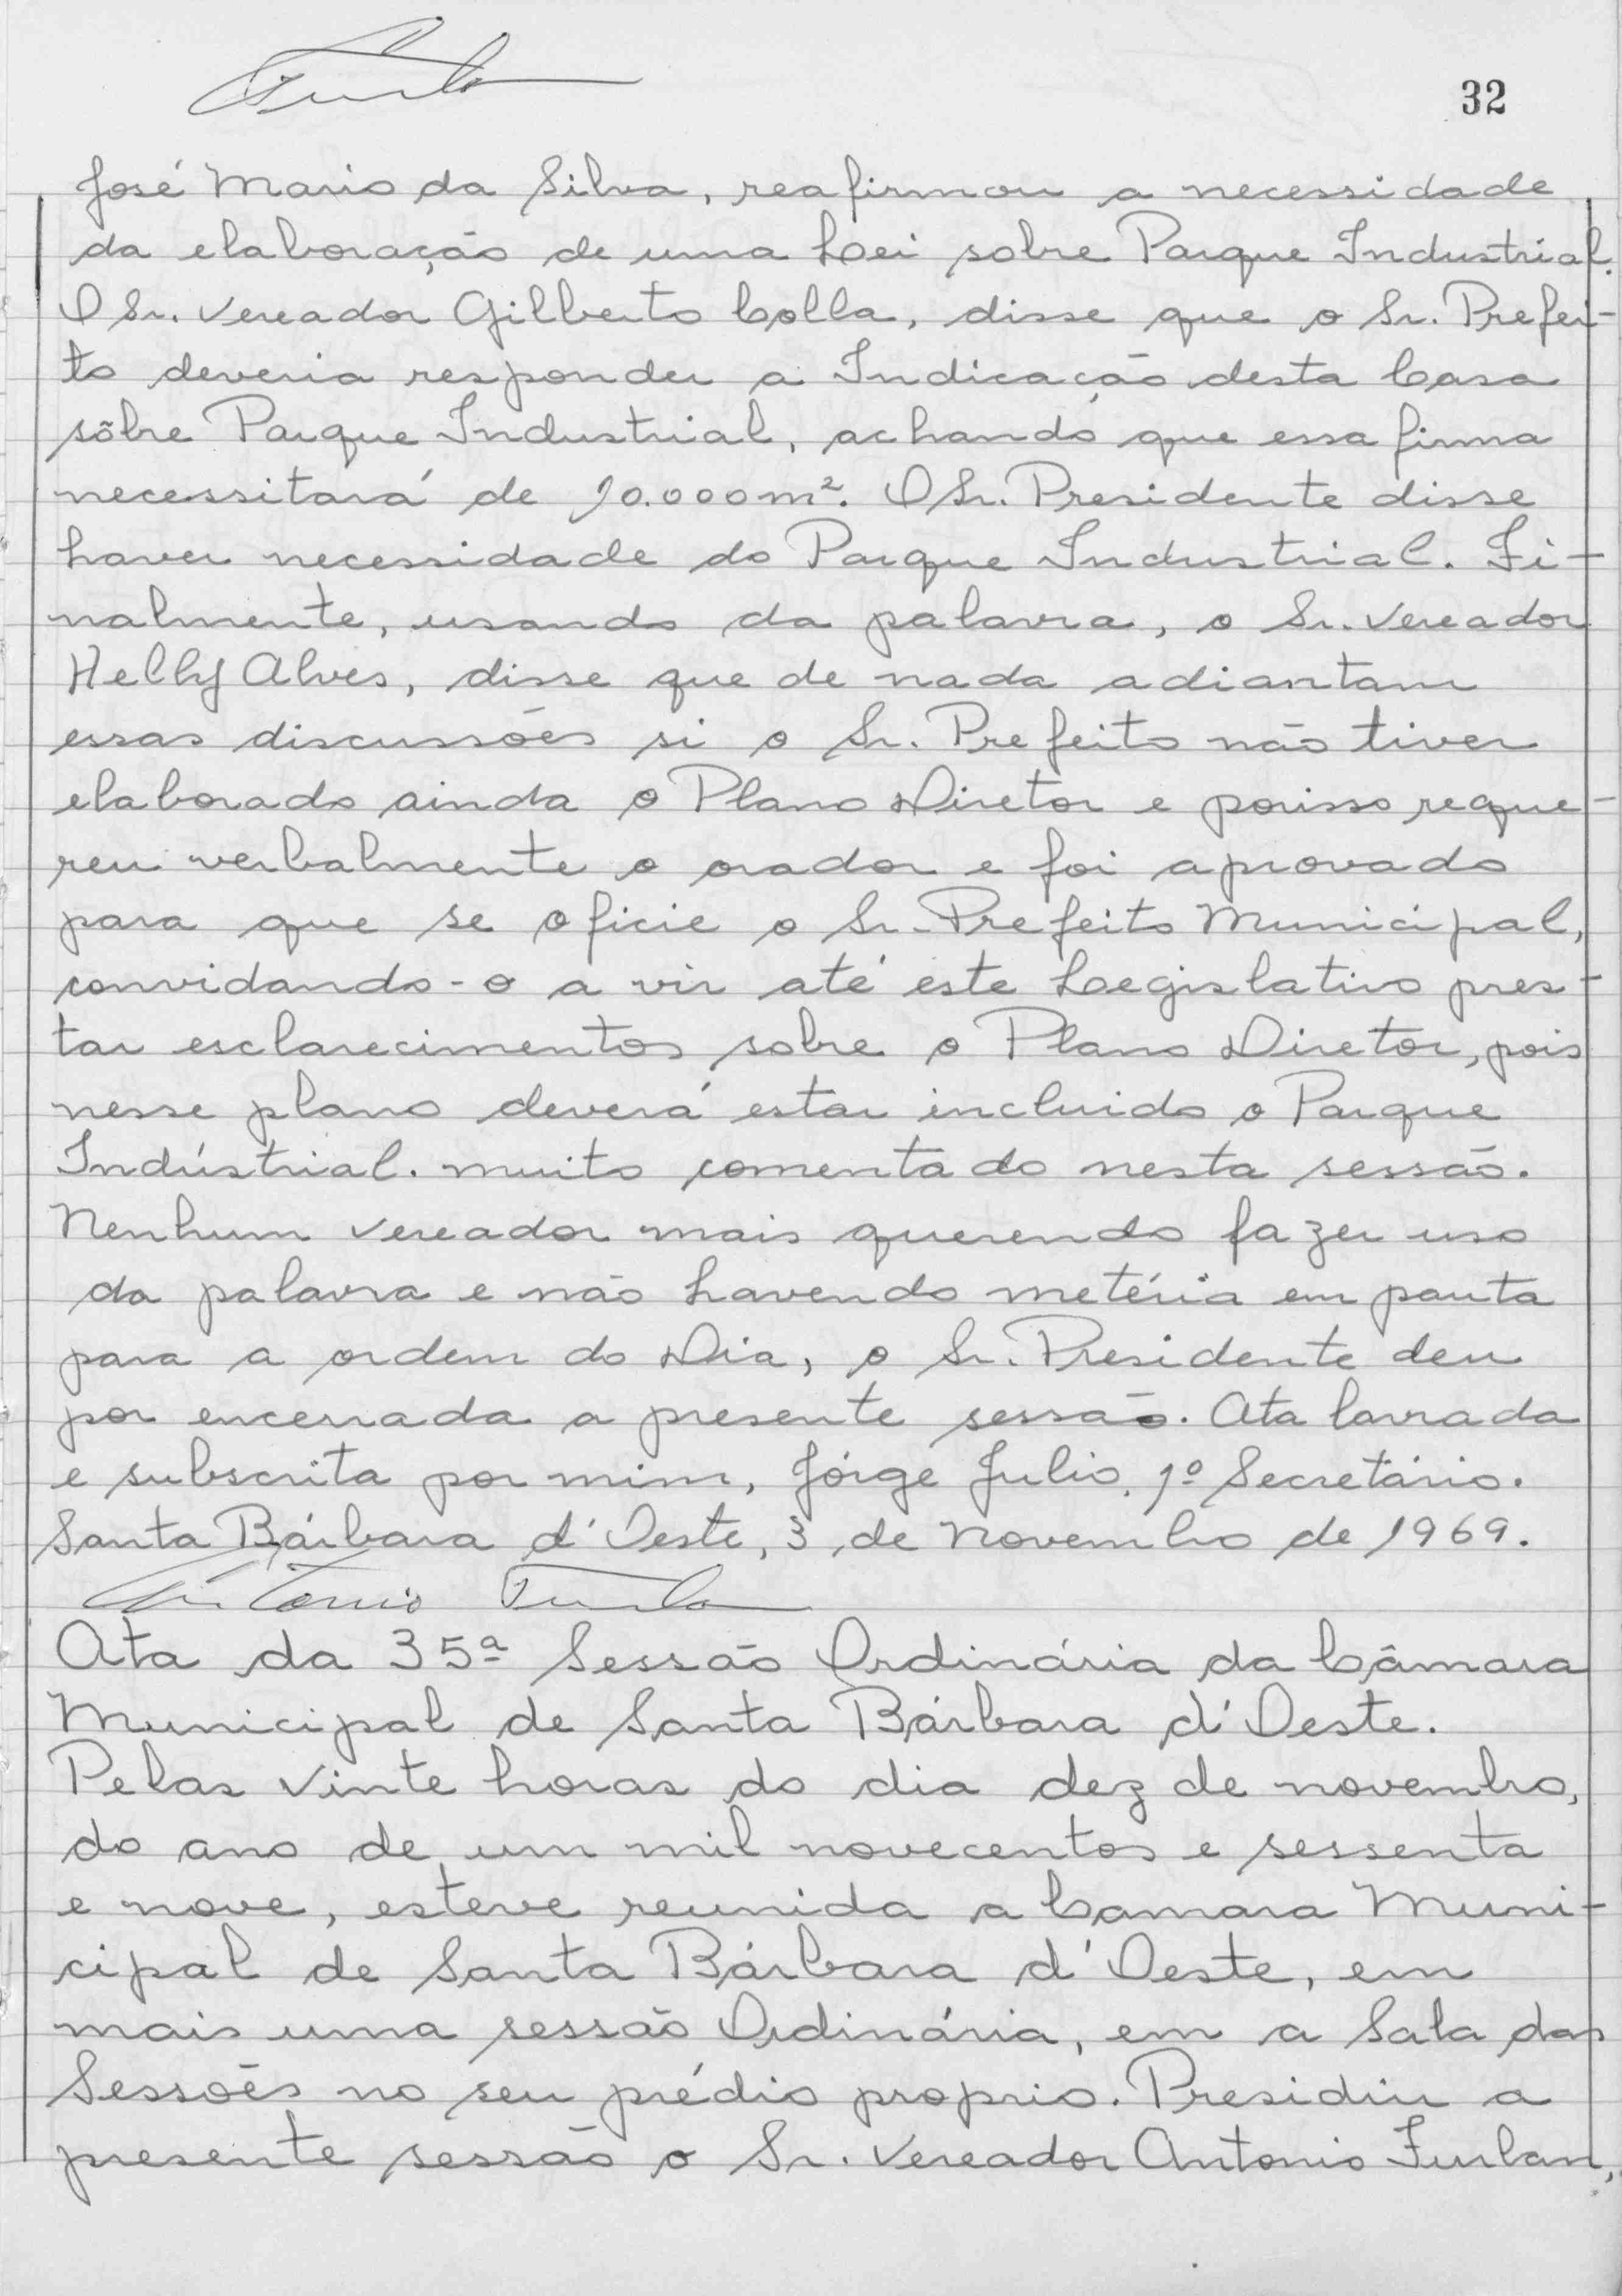 32
José Mario da Silva, reafirmou a necessidade
da elaboração de uma Lei sobre Parque Industrial.
O Sr. Vereador Gilberto Colla, disse que o Sr. Prefei-
to deveria responder a Indicação desta Casa
sôbre Parque Industrial, achando que essa firma
necessitará de 10.000m². O Sr. Presidente disse
haver necessidade do Parque Industrial. Fi-
nalmente, usando da palavra, o Sr. Vereador
Helly Alves, disse que de nada adiantam
essas discussões si o Sr. Prefeito não tiver
elaborado ainda o Plano Diretor e porisso reque-
reu verbalmente o orador e foi aprovado
para que se oficie o Sr. Prefeito Municipal,
convidando-o a vir até este Legislativo pres-
tar esclarecimentos sobre o Plano Diretor, pois
nesse plano deverá estar incluido o Parque
Indústrial. muito comentado nesta sessão.
Nenhum vereador mais querendo fazer uso
da palavra e não havendo metéria em pauta
para a ordem do Dia, o Sr. Presidente deu
por encerrada a presente sessão. Ata lavrada
e subscrita por mim, Jórge Julio, 1º Secretário.
Santa Bárbara d'Oeste, 3 de Novembro de 1969.
Antonio Furlan
Ata da 35ª Sessão Ordinária da Câmara
Municipal de Santa Bárbara d'Oeste.
Pelas vinte horas do dia dez de novembro,
do ano de um mil novecentos e sessenta
e nove, esteve reunida a Camara Muni-
cipal de Santa Bárbara d'Oeste, em
mais uma sessão Ordinária, em a Sala das
Sessões no seu prédio proprio. Presidiu a
presente sessão o Sr. Vereador Antonio Furlan,